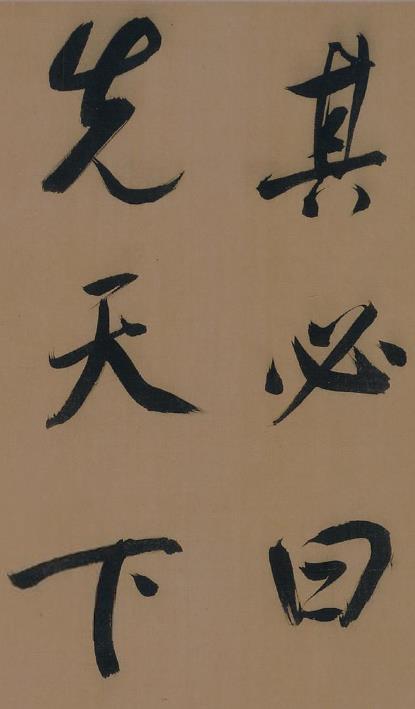 其必曰
先天下